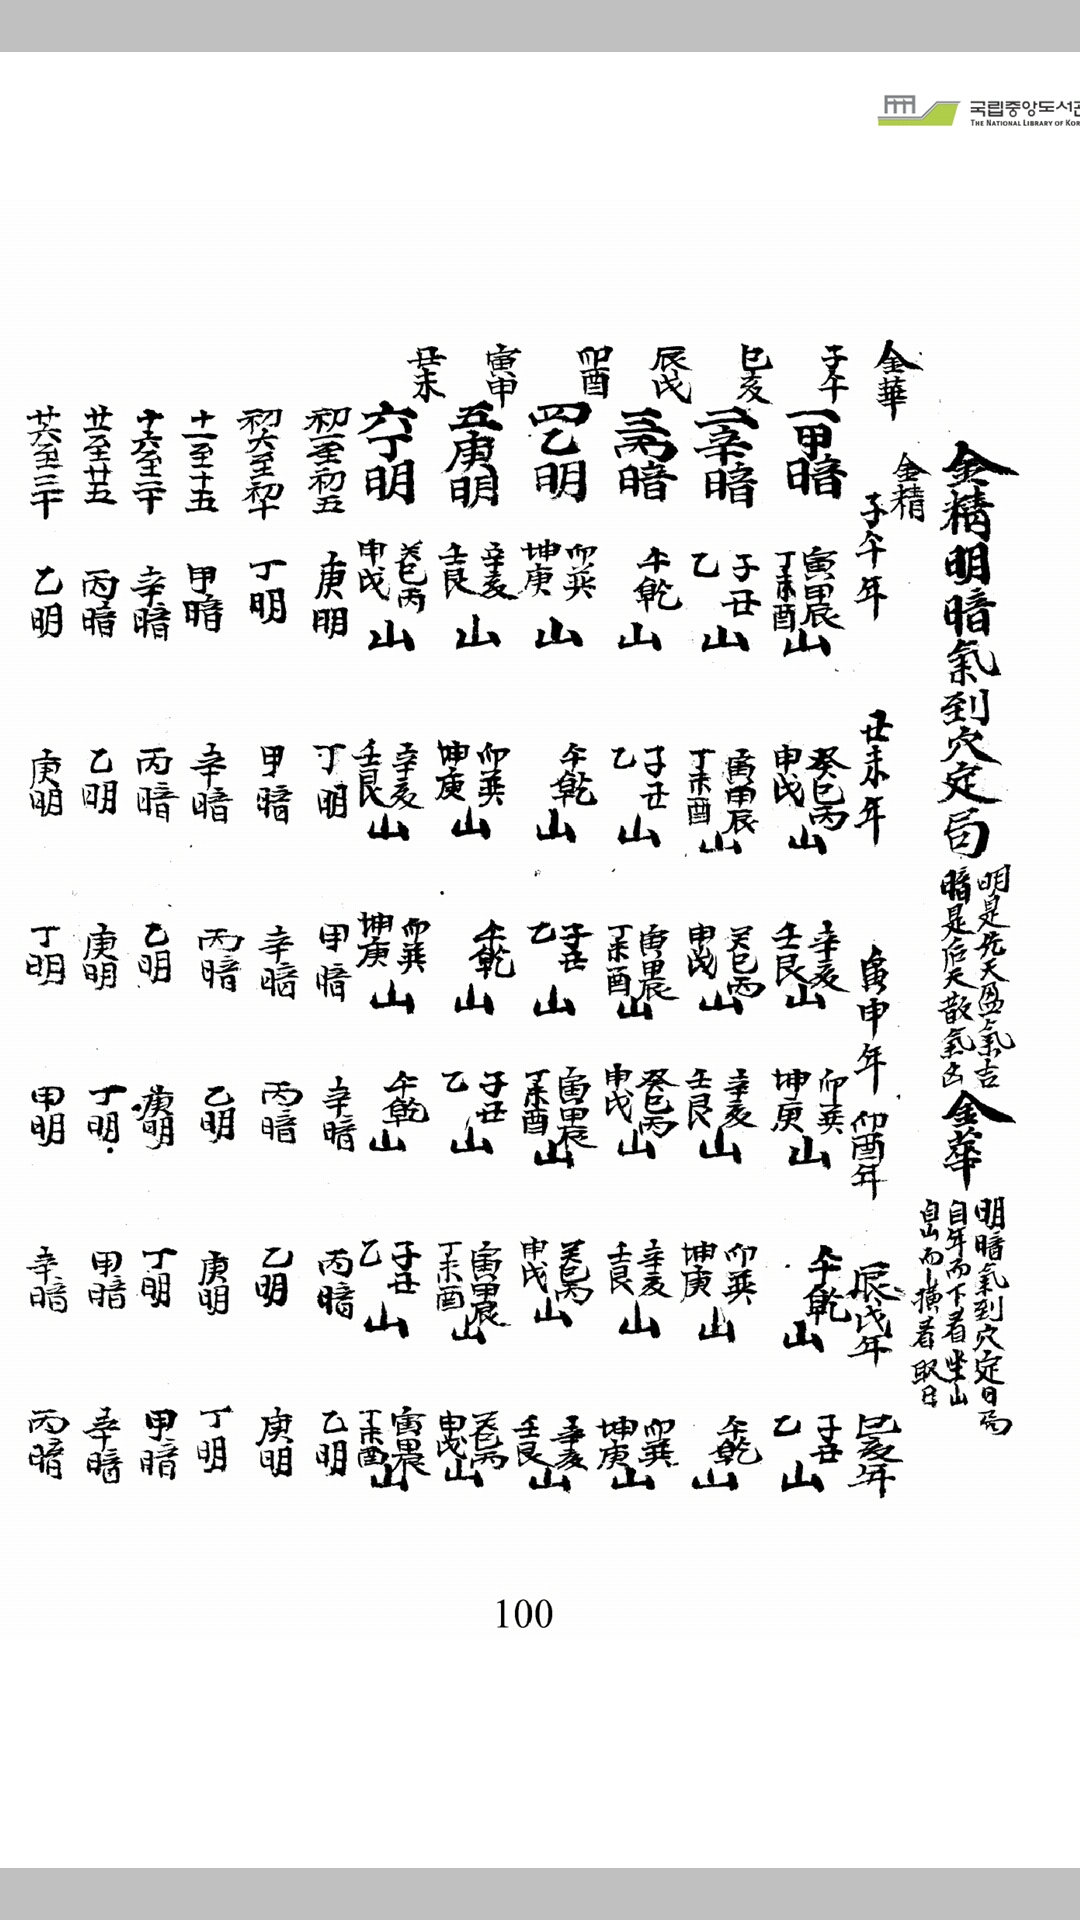 국립중앙도서관
THE NATIONAL LIBRARY OF KOR
金精明暗氣到穴定局
明是先天盈氣吉
暗是后天散氣凶
金華
明暗氣到穴定日局
自年而下看坐山
自山而橫看取日
金華
金精
子午年
丑未年
寅申年
卯酉年
辰戌年
巳亥年
子午
一甲暗
寅甲辰丁未酉山
癸巳丙申戌山
辛亥壬艮山
卯巽坤庚山
午乾山
子丑乙山
巳亥
二辛暗
子丑乙山
寅甲辰丁未酉山
癸巳丙申戌山
辛亥壬艮山
卯巽坤庚山
午乾山
辰戌
三丙暗
午乾山
子丑乙山
寅甲辰丁未酉山
癸巳丙申戌山
辛亥壬艮山
卯巽坤庚山
卯酉
四乙明
卯巽坤庚山
午乾山
子丑乙山
寅甲辰丁未酉山
癸巳丙申戌山
辛亥壬艮山
寅申
五庚明
辛亥壬艮山
卯巽坤庚山
午乾山
子丑乙山
寅甲辰丁未酉山
癸巳丙申戌山
丑未
六丁明
癸巳丙申戌山
辛亥壬艮山
卯巽坤庚山
午乾山
子丑乙山
寅甲辰丁未酉山
初一至初五
庚明
丁明
甲暗
辛暗
丙暗
乙明
初六至初十
丁明
甲暗
辛暗
丙暗
乙明
庚明
十一至十五
甲暗
辛暗
丙暗
乙明
庚明
丁明
十六至二十
辛暗
丙暗
乙明
庚明
丁明
甲暗
廿一至廿五
丙暗
乙明
庚明
丁明
甲暗
辛暗
廿六至三十
乙明
庚明
丁明
甲明
辛暗
丙暗
100